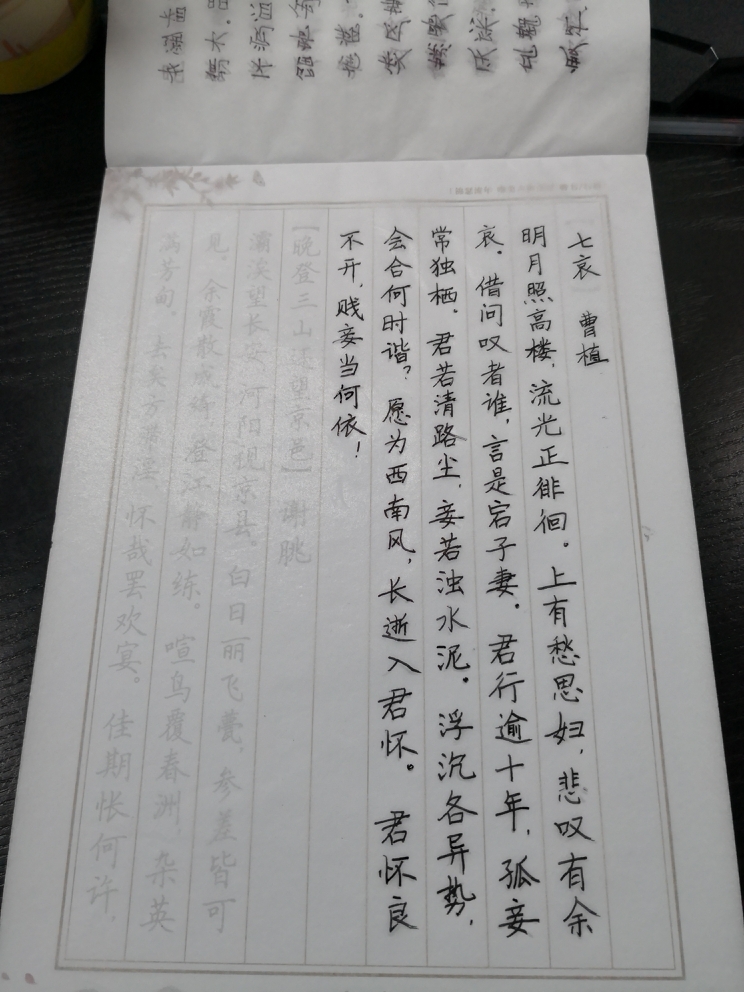 七哀 曹植
明月照高楼，流光正徘徊。上有愁思妇，悲叹有余
哀。借问叹者谁，言是宕子妻。君行逾十年，孤妾
常独栖。君若清路尘，妾若浊水泥。浮沉各异势，
会合何时谐？愿为西南风，长逝入君怀。君怀良
不开，贱妾当何依！
【晚登三山还望京邑】谢朓
灞涘望长安，河阳视京县。白日丽飞甍，参差皆可
见。余霞散成绮，澄江静如练。喧鸟覆春洲，杂英
满芳甸。去矣方滞淫，怀哉罢欢宴。佳期怅何许，